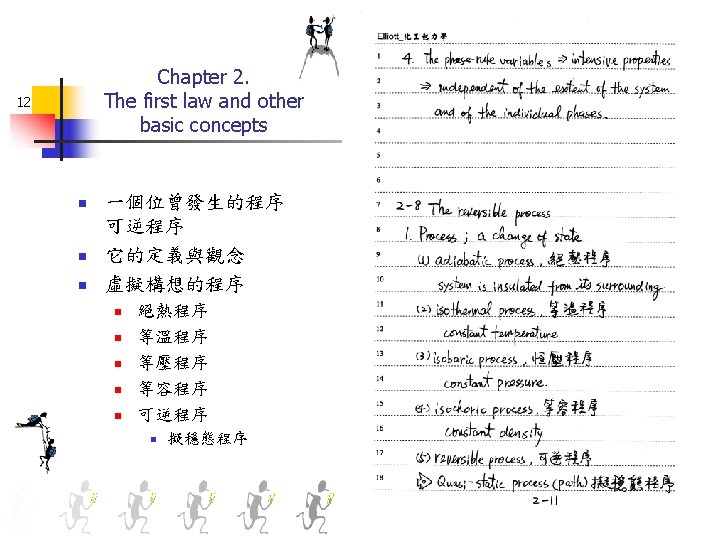 12
Chapter 2.
The first law and other
basic concepts
一個位曾發生的程序
可逆程序
它的定義與觀念
虛擬構想的程序
絕熱程序
等溫程序
等壓程序
等容程序
可逆程序
擬穩態程序
Elliott_化工熱力學
1 4. The phase-rule variables ⇒ intensive properties
2 ⇒ independent of the extent of the system
3 and of the individual phases.
4
5
6
7 2-8 The reversible process
8 1. Process ; a change of state
9 (1) adiabatic process, 絕熱程序
10 system is insulated from its surrounding
11 (2) isothermal process, 等溫程序
12 constant temperature
13 (3) isobaric process, 恒壓程序
14 constant pressure.
15 (4) isochoric process, 等容程序
16 constant density
17 (5) reversible process, 可逆程序
18 ⇒ Quasi-static process (path) 擬穩態程序
2-11